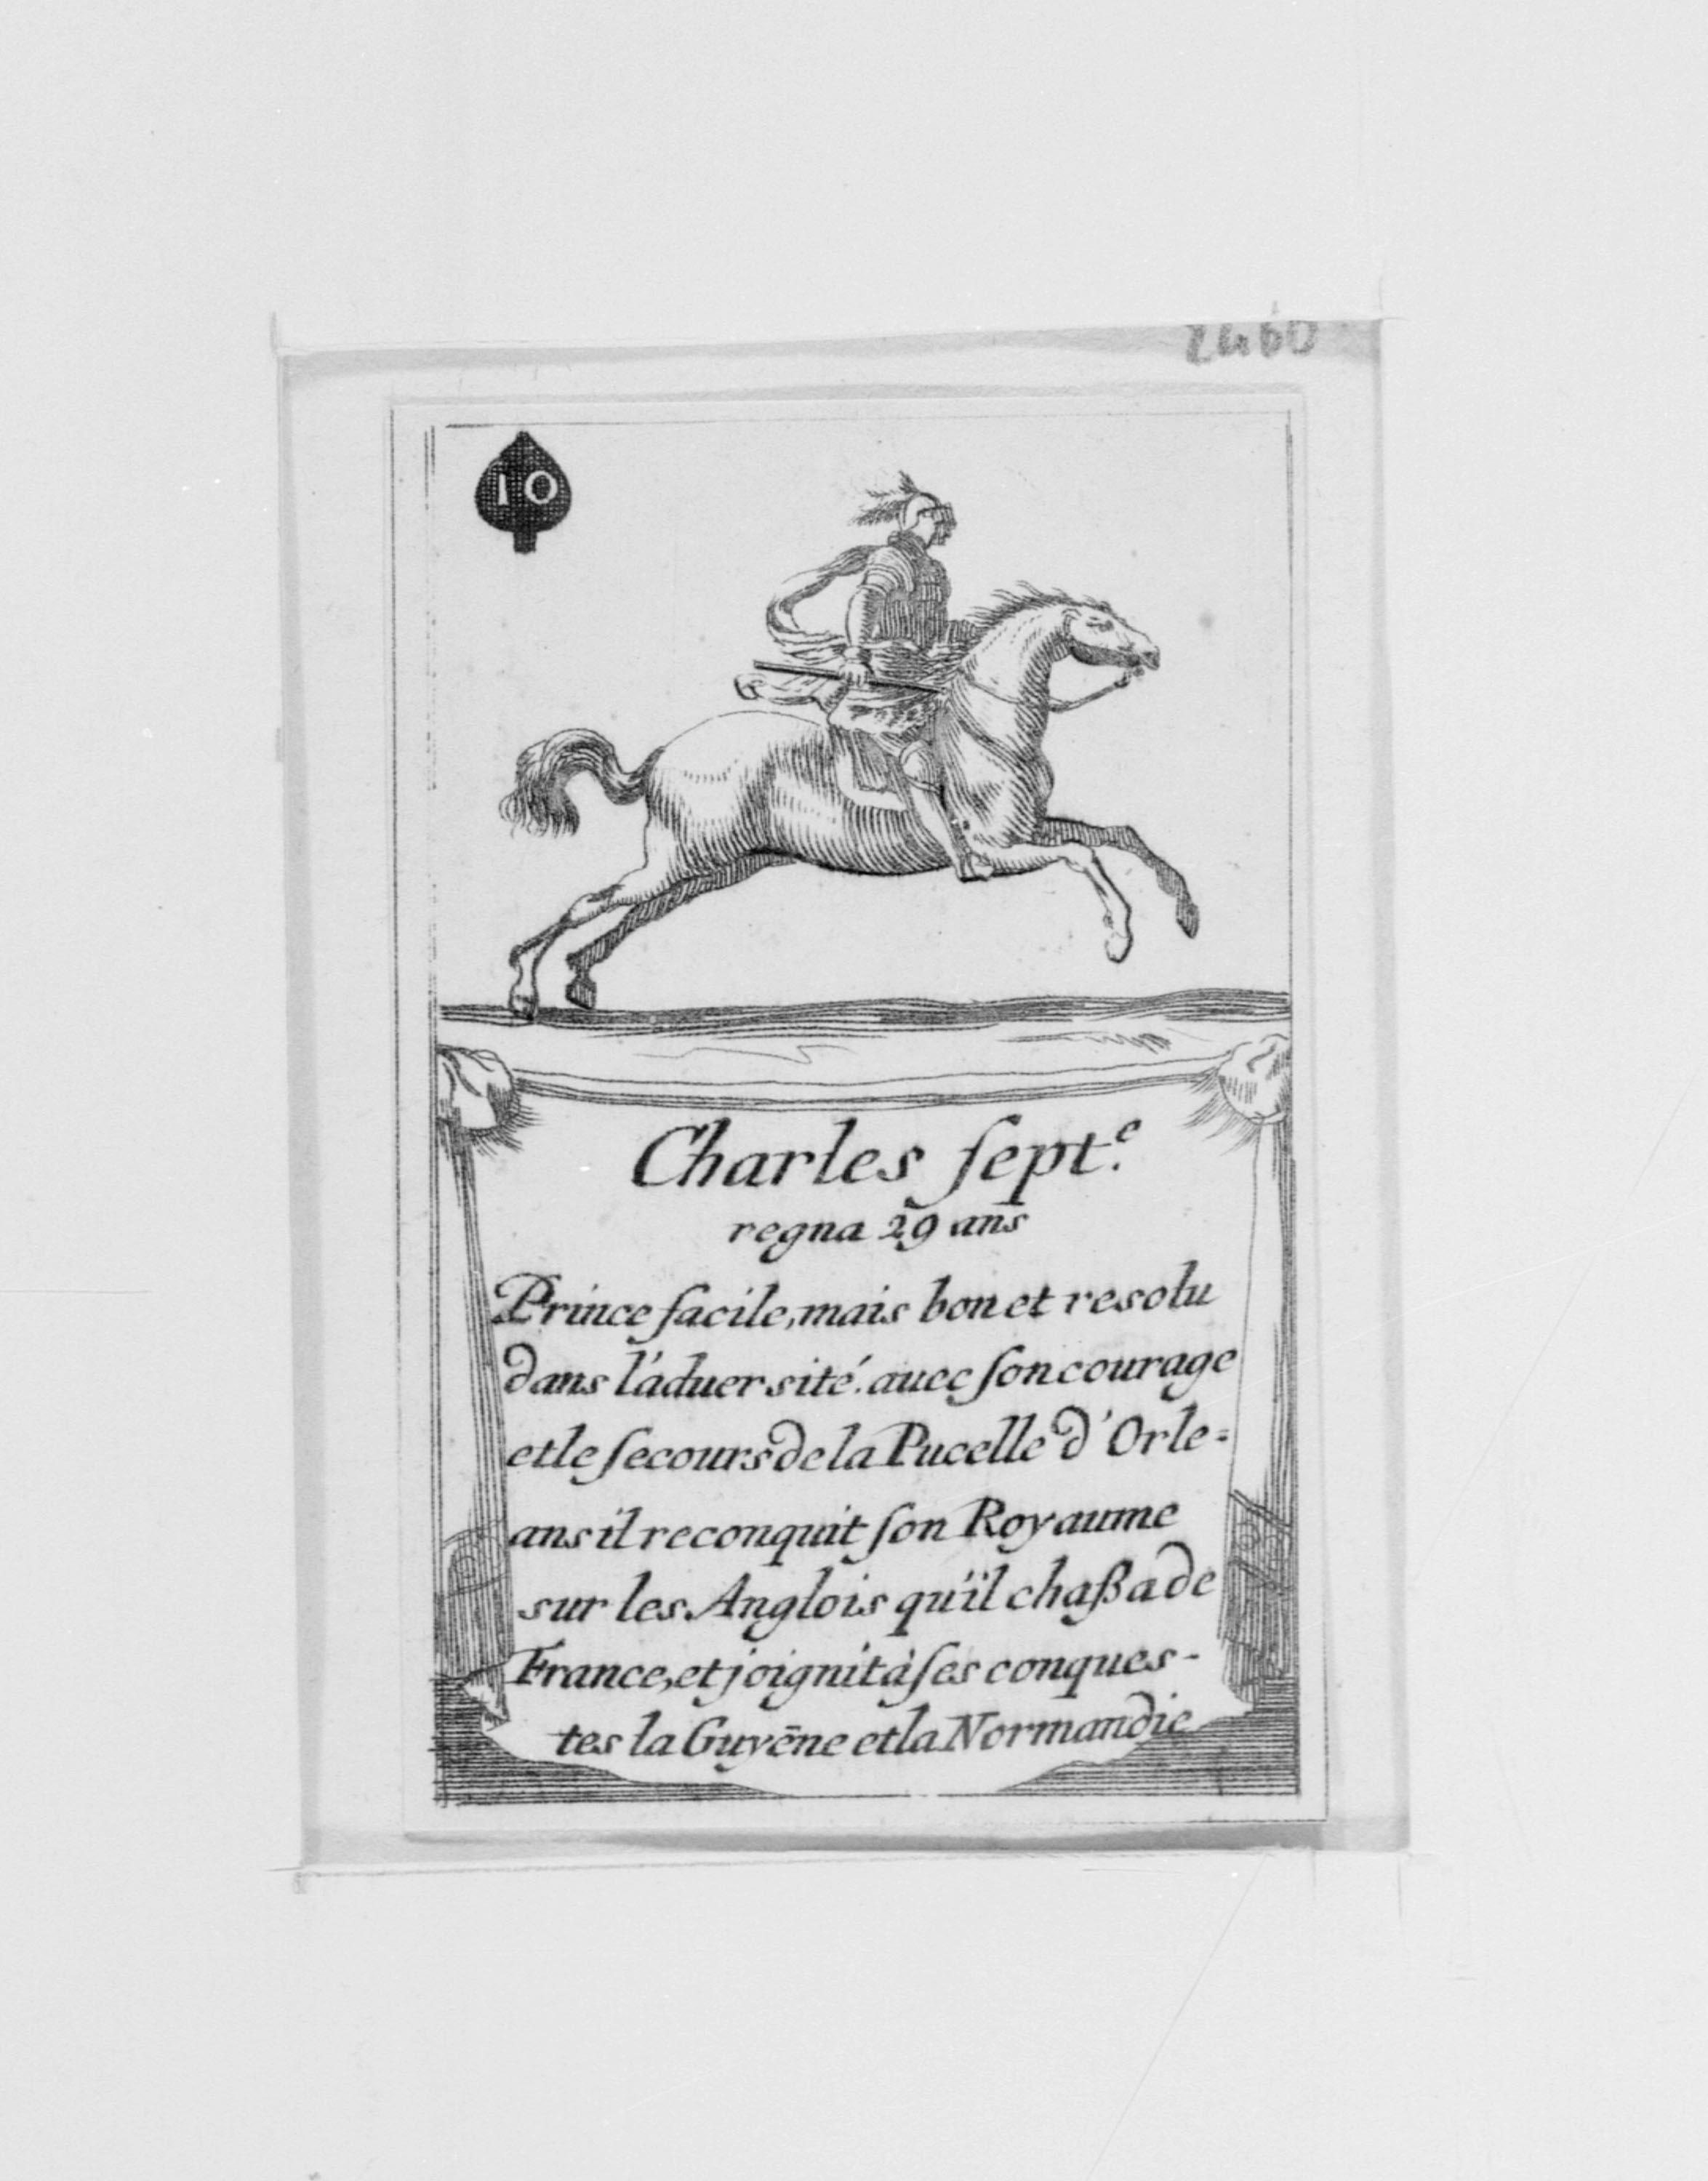 2460
10
Charles ſept.e
regna 29 ans
Prince facile, mais bon et resolu
dans l'aduersité. auec ſon courage
et le ſecours de la Pucelle d'Orle=
ans il reconquit ſon Royaume
sur les Anglois qu'il chaßa de
France, et joignit à ſes conques-
tes la Guyēne et la Normandie